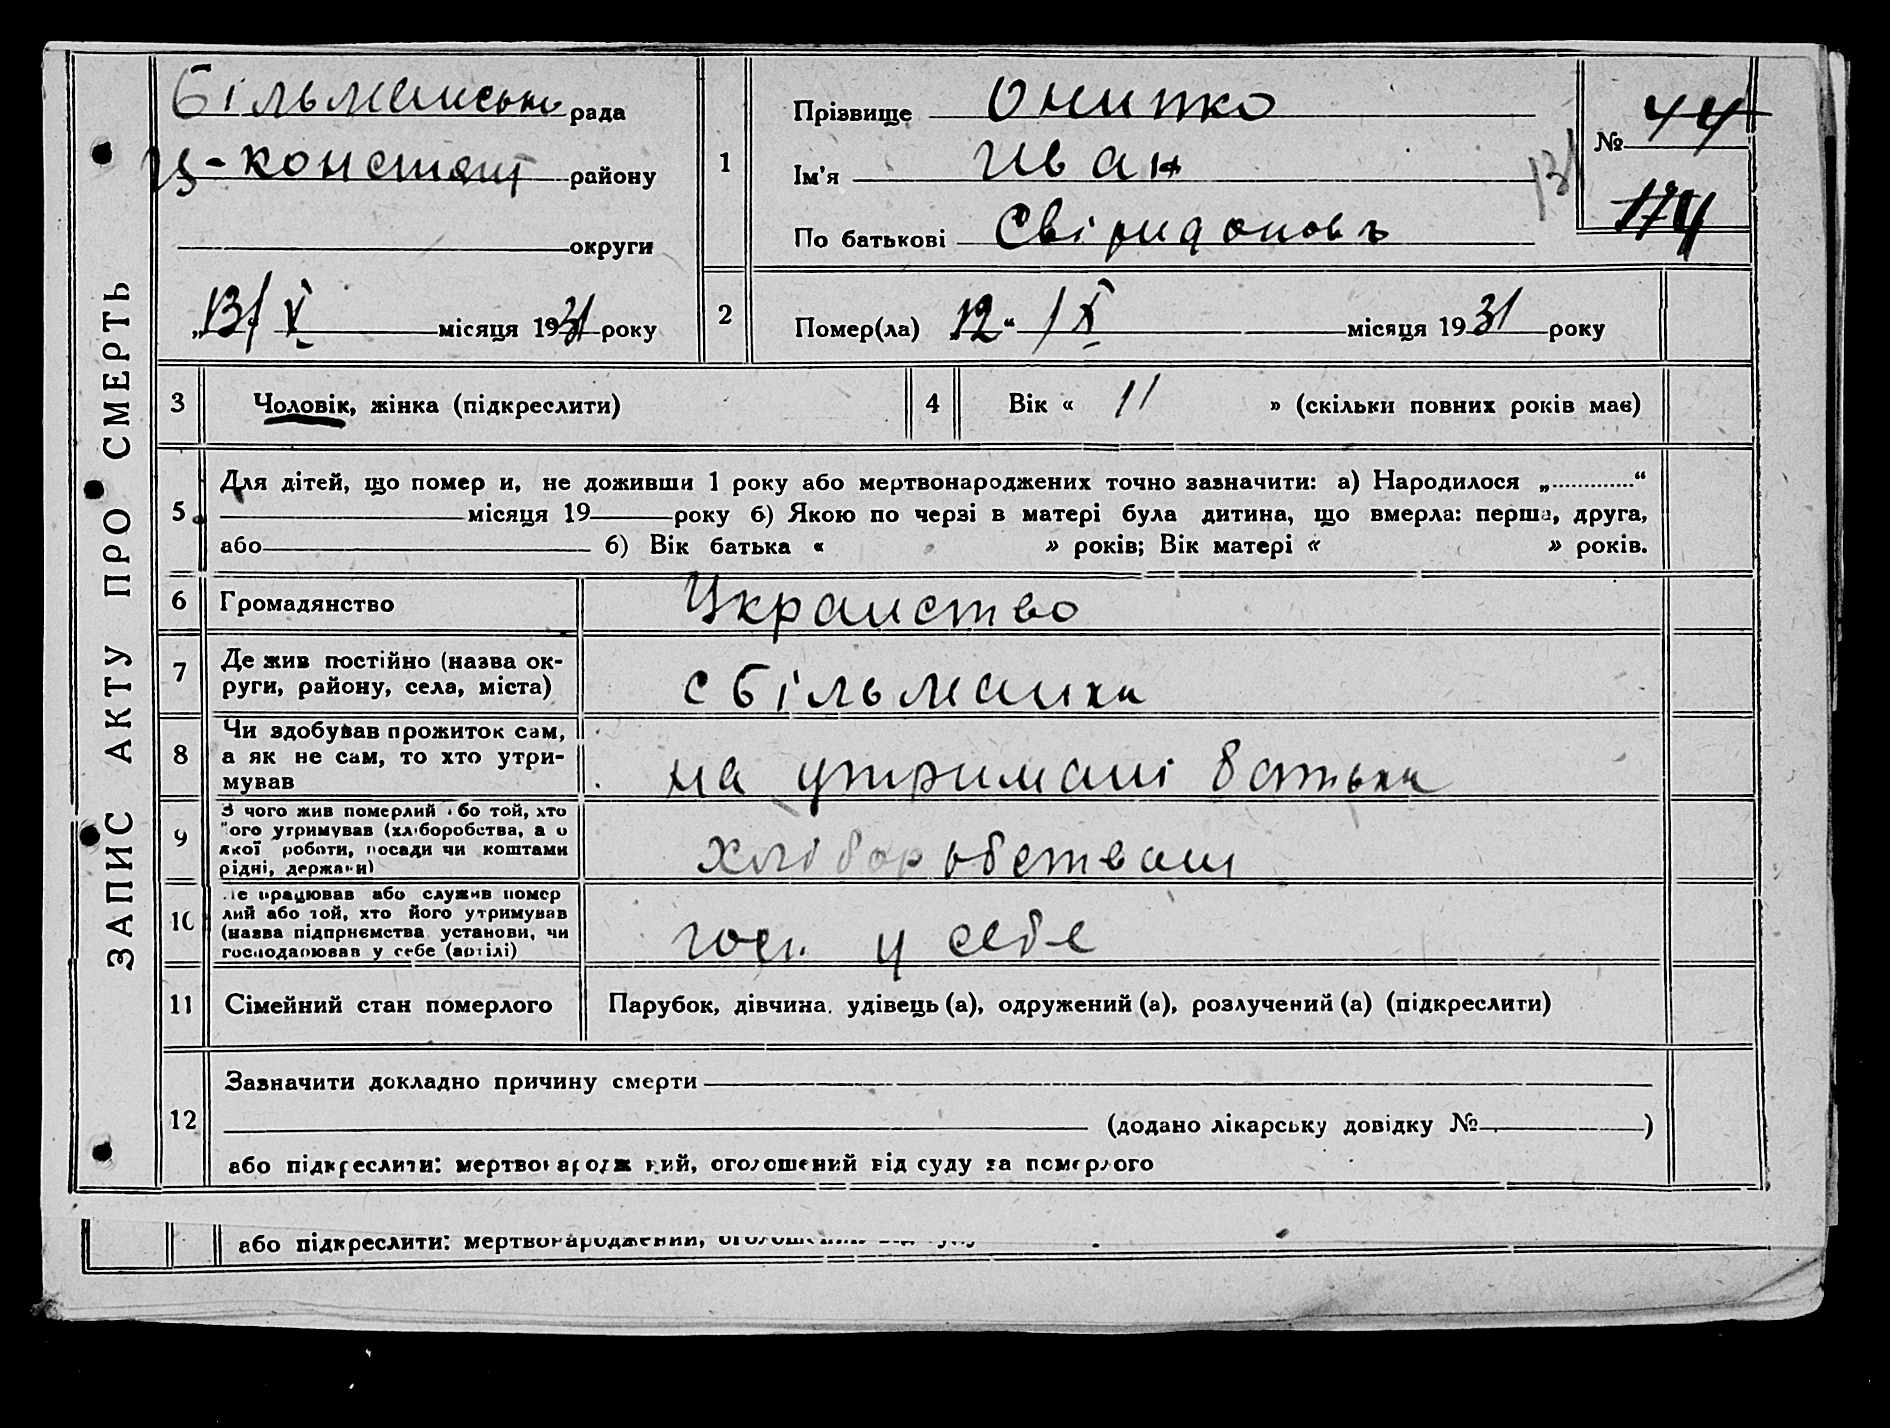 ЗАПИС АКТУ ПРО СМЕРТЬ
Більманська рада
Ц-Констянт району
округи
„13/ X місяця 1931 року
1
Прізвище Онипко
Ім'я Иван
По батькові Свіридоновъ
№ 44
174
13/
2
Помер(ла) 12 “ /X місяця 1931 року
3 Чоловік, жінка (підкреслити)
4 Вік « 11 » (скільки повних років має)
5
Для дітей, що помер и, не доживши 1 року або мертвонароджених точно зазначити: а) Народилося „............“
місяця 19 року б) Якою по черзі в матері була дитина, що вмерла: перша, друга,
або б) Вік батька « » років; Вік матері « » років.
6 Громадянство Украиство
7 Де жив постійно (назва ок-
руги, району, села, міста) с Більманка
8 Чи здобував прожиток сам,
а як не сам, то хто утри-
мував на утримані батька
9 З чого жив померлий або той, хто
його утримував (хліборобства, а о
якої роботи, посади чи коштами
рідні, держави) хліборобствам
10 Де працював або служив помер
лий або той, хто його утримував
(назва підприємства установи, чи
господарював у себе (артілі) госп. у себе
11 Сімейний стан померлого Парубок, дівчина, удівець (а), одружений (а), розлучений (а) (підкреслити)
12
Зазначити докладно причину смерти
(додано лікарську довідку № )
або підкреслити: мертвонароджений, оголошений від суду за померлого
або підкреслити: мертвонароджений,